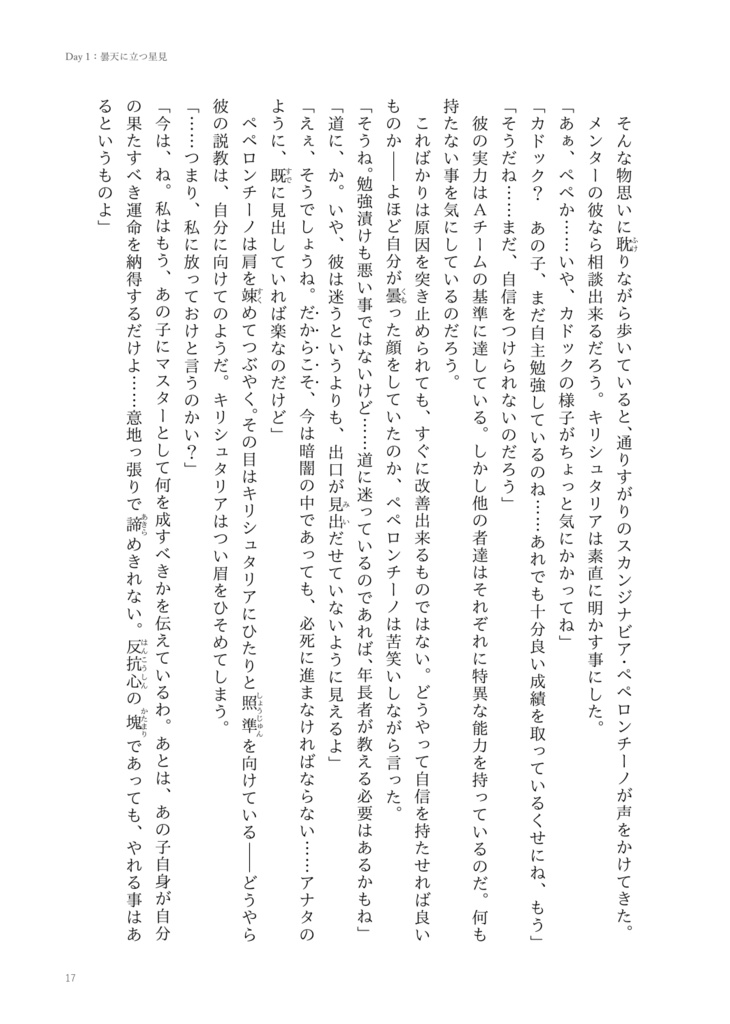 Day 1：曇天に立つ星見
そんな物思いに耽りながら歩いていると、通りすがりのスカンジナビア・ペペロンチーノが声をかけてきた。
メンターの彼なら相談出来るだろう。キリシュタリアは素直に明かす事にした。
「あぁ、ペペか……いや、カドックの様子がちょっと気にかかってね」
「カドック？　あの子、まだ自主勉強しているのね……あれでも十分良い成績を取っているくせにね、もう」
「そうだね……まだ、自信をつけられないのだろう」
彼の実力はAチームの基準に達している。しかし他の者達はそれぞれに特異な能力を持っているのだ。何も
持たない事を気にしているのだろう。
こればかりは原因を突き止められても、すぐに改善出来るものではない。どうやって自信を持たせれば良い
ものか――よほど自分が曇った顔をしていたのか、ペペロンチーノは苦笑いしながら言った。
「そうね。勉強漬けも悪い事ではないけど……道に迷っているのであれば、年長者が教える必要はあるかもね」
「道に、か。いや、彼は迷うというよりも、出口が見出だせていないように見えるよ」
「えぇ、そうでしょうね。だからこそ、今は暗闇の中であっても、必死に進まなければならない……アナタの
ように、既に見出していれば楽なのだけど」
ペペロンチーノは肩を竦めてつぶやく。その目はキリシュタリアにひたりと照準を向けている――どうやら
彼の説教は、自分に向けてのようだ。キリシュタリアはつい眉をひそめてしまう。
「……つまり、私に放っておけと言うのかい？」
「今は、ね。私はもう、あの子にマスターとして何を成すべきかを伝えているわ。あとは、あの子自身が自分
の果たすべき運命を納得するだけよ……意地っ張りで諦めきれない。反抗心の塊であっても、やれる事はあ
るというものよ」
17